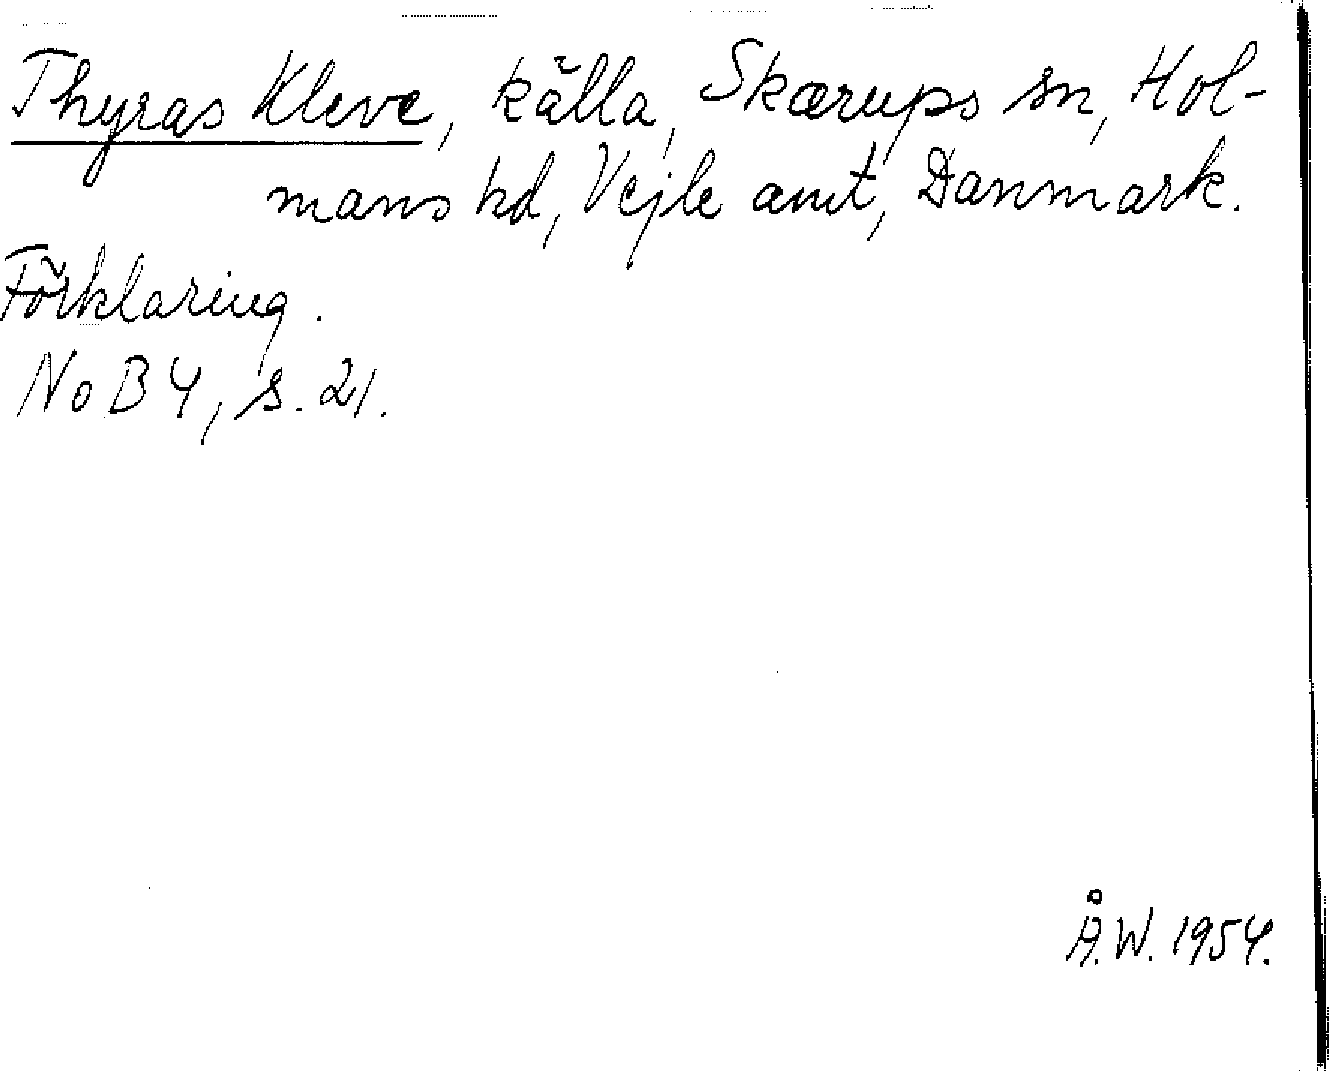 Thyras Kleve, källa, Skærups sn, Hol-
mans hd, Vejle amt, Danmark.
Förklaring.
NoB 4, s. 21.
Å.W. 1954.